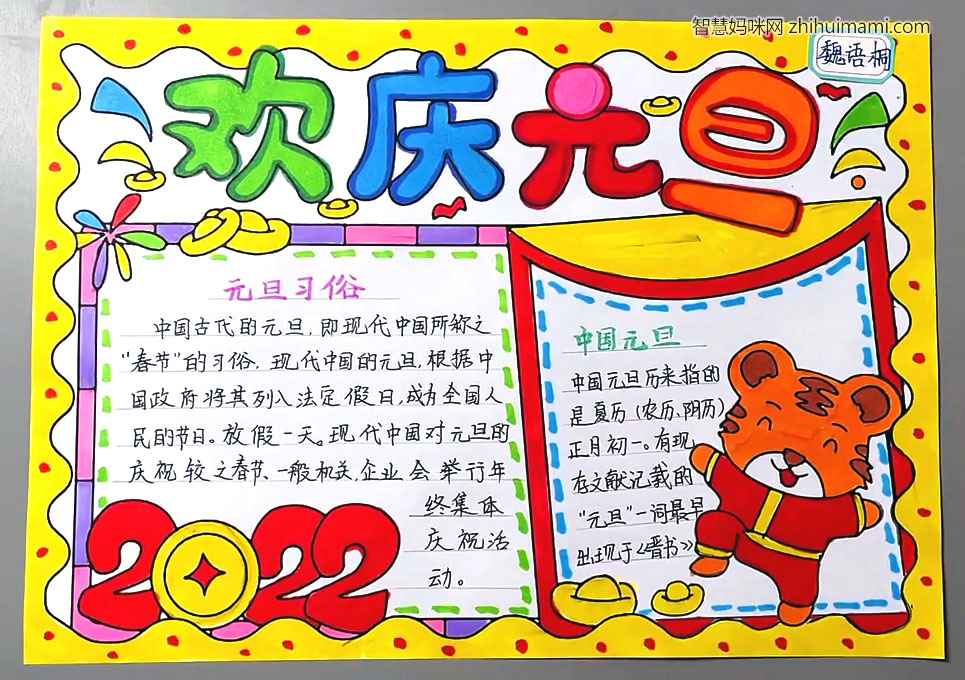 智慧妈咪网 zhihuimami.com
魏语桐
欢庆元旦
元旦习俗
中国古代的元旦，即现代中国所称之
"春节"的习俗，现代中国的元旦，根据中
国政府将其列入法定假日，成为全国人
民的节日。放假一天。现代中国对元旦的
庆祝较之春节、一般机关、企业会举行年
终集体
庆祝活
动。
2022
中国元旦
中国元旦历来指的
是夏历（农历、阴历）
正月初一。有现
存文献记载的
"元旦"一词最早
出现于《晋书》